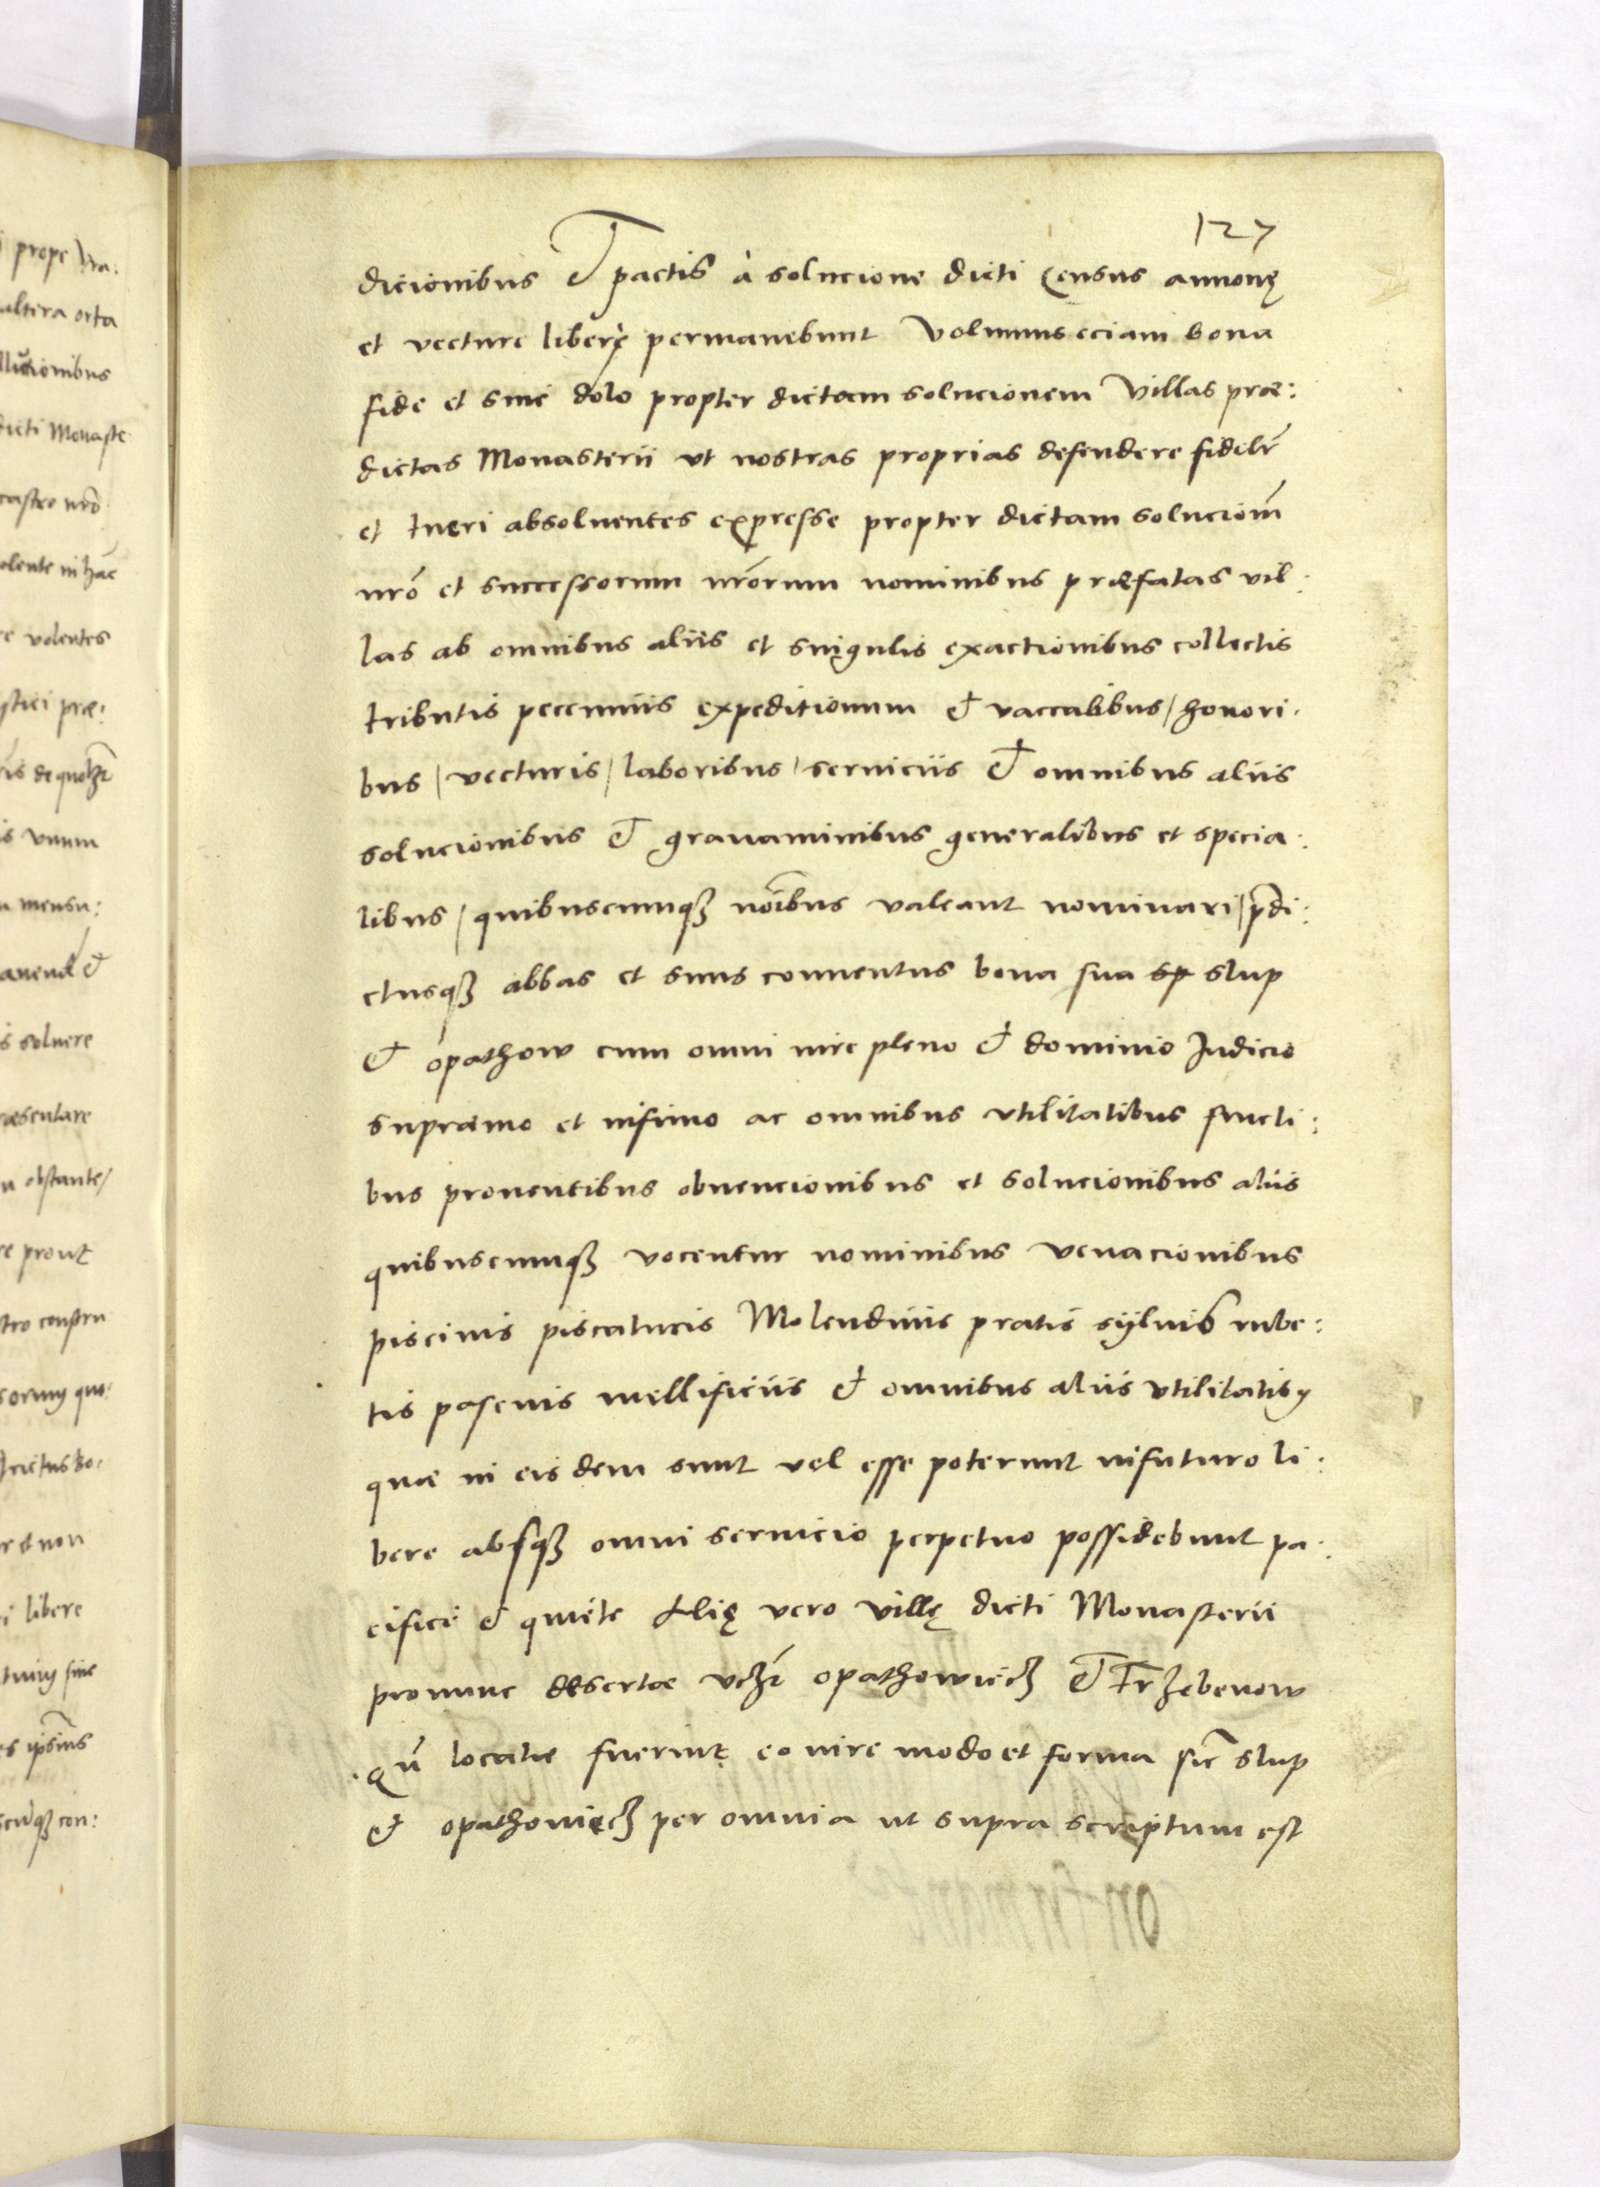 127
dicionibus et pactis à solucione dicti Census annonę
et vecture liberę permanebunt Volumus eciam bona
fide et sine dolo propter dictam solucionem Villas præ:
dictas Monasterii ut nostras proprias defendere fidelr̃
et tueri absoluentes expresse propter dictam solucionẽ
nr̃o et successorum nr̃orum nominibus præfatas vil
las ab omnibus aliis et singulis exactionibus collectis
tributis pecuniis expeditionum et vaccalibus / honori.
bus / vecturis / laboribus / seruiciis et omnibus aliis
solucionibus et grauaminibus generalibus et specia.
libus / quibuscumqȝ noĩbus valeant nominari / p̃di:
ctusqȝ abbas et suus conuentus bona sua sp slup
et opathow cum omni iure pleno et dominio Judicio
supræmo et infimo ac omnibus vtilitatibus fructi:
bus prouentibus obuencionibus et solucionibus aliis
quibuscumqȝ vocentur nominibus venacionibus
piscinis piscaturis Molendinis pratis syluis rube:
tis pascuis mellificiis et omnibus aliis vtilitatibȝ
quæ in eisdem sunt vel esse poterunt infuturo li:
bere absqȝ omni seruicio perpetuo possidebunt pa:
cifice et quiete Alię vero villę dicti Monasterii
pronunc desertæ vczt̃ opathowiecȝ et Trzebenow
qñ locatæ fuerint eo iure modo et forma sic̃ slup
et opathouiecȝ per omnia ut supra scriptum est
prope
altera orta
dicti Monaste
castro nr̃o
volentes
vnum
mensu:
soluere
obstante /
prout
constru
non
libere
sine
con: